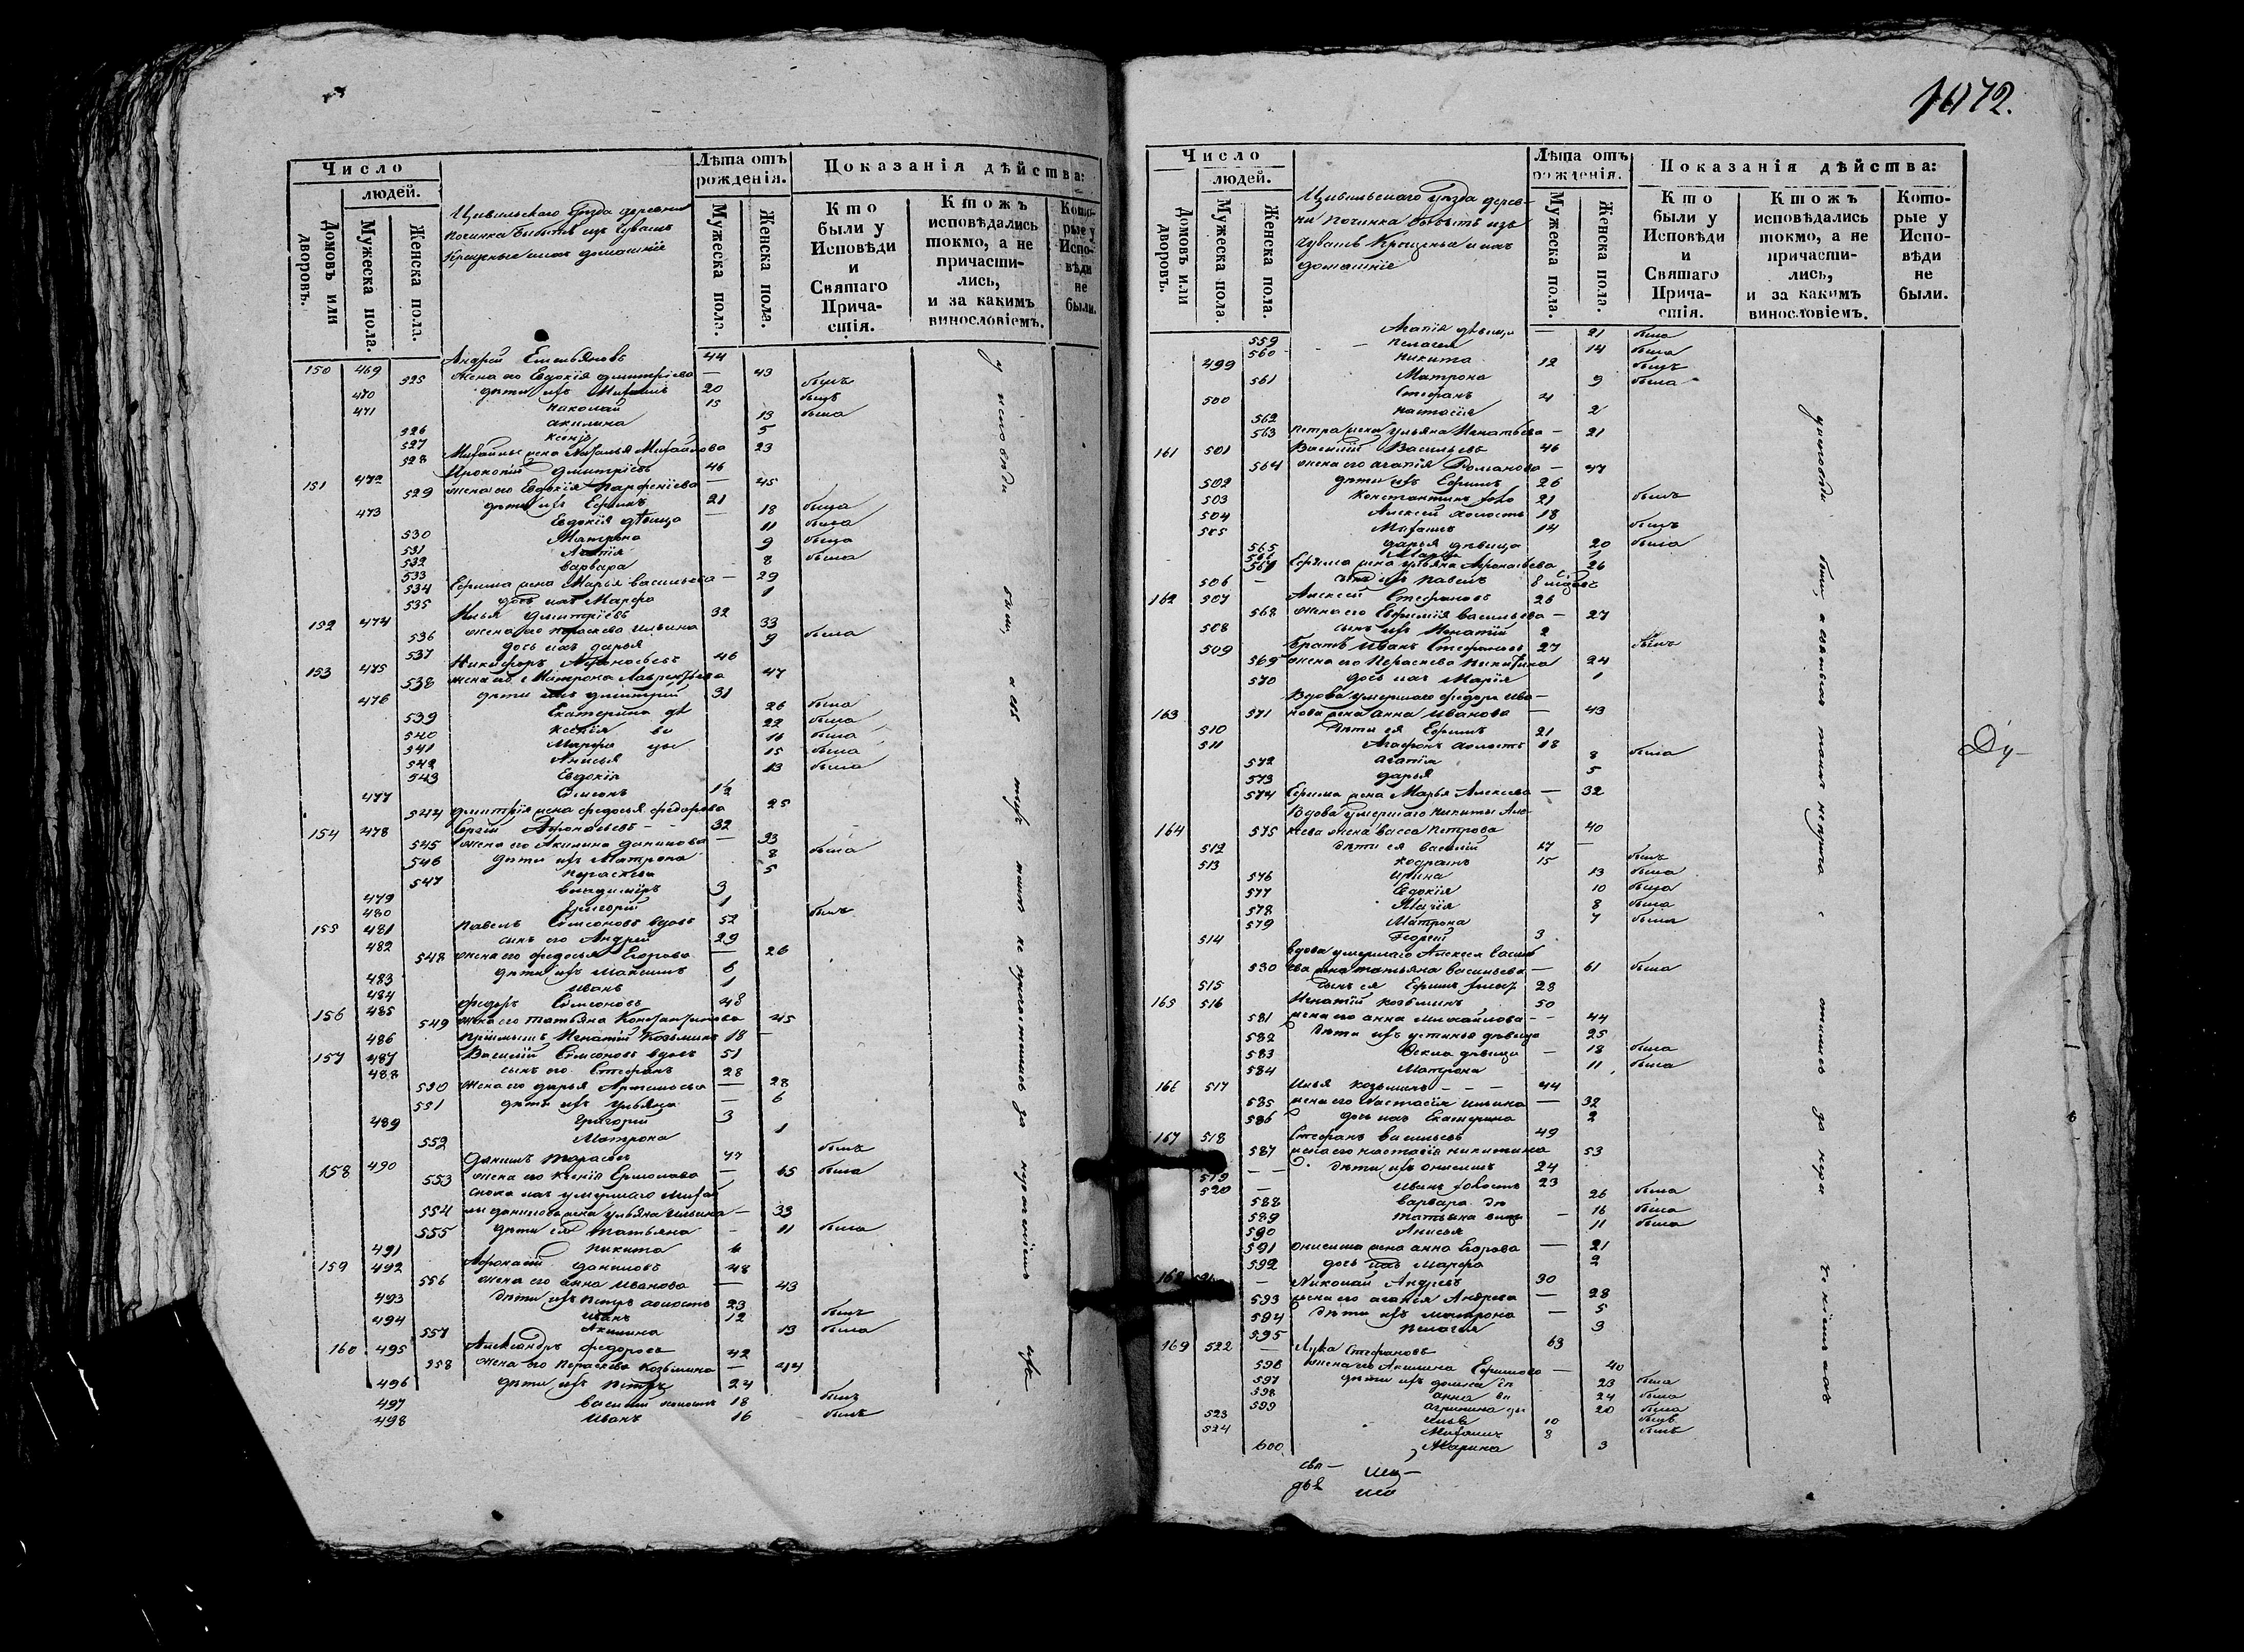 1072.
Число
людей.
Домовъ или дворовъ.
Мужеска пола.
Женска пола.
Цивильскаго уѣзда деревни
починка Быбыть изъ Чувашъ
Крещеные и ихъ домашніе
Лѣта отъ рожденія.
Мужеска пола.
Женска пола.
Показанія дѣйства:
Кто были у Исповѣди и Святаго Причастія.
Ктожъ исповѣдались токмо, а не причастились, и за какимъ винословіемъ.
Которые у Исповѣди не были.
150 469 Андрей Емельяновъ 44
525 жена его Евдокія Дмитріева — 43
470 дѣти ихъ Михаилъ 20 былъ
471 Николай 15 былъ
526 Акилина 13 была
527 Ксенія 5
528 Михайлы жена Наталья Михайлова 23
151 472 Прокопій Дмитріевъ 46
529 жена его Евдокія Парфеніева — 45
473 дѣти ихъ Ефимъ 21
530 Евдокія дѣвица — 18 была
531 Матрона 11 была
532 Агапія 9 была
533 Варвара 8 была
534 Ефима жена Марья Васильева — 29
535 дочь ихъ Марфа 1
152 474 Илья Дмитріевъ 32
536 жена его Параскева Ильина 33
537 дочь ихъ Дарья 9 была
153 475 Никифоръ Афонасьевъ 46
538 жена его Матрона Лаврентьева 47
476 дѣти ихъ Дмитрій 31
539 Екатерина дѣ 26 была
540 Ксенія ви 22 была
541 Марфа цы 16 была
542 Анисья 15 была
543 Евдокія 13 была
477 Симеонъ 1½
544 Дмитрія жена Федосья Федорова 25
154 478 Сергій Афонасьевъ - - 32
545 жена его Акилина Данилова — 33
546 дѣти ихъ Матрона 8 была
547 Параскева 5
479 Владиміръ 3
480 Григорій 1
155 481 Павелъ Симеоновъ вдовъ 52 былъ
482 сынъ его Андрей 29
548 жена его Федосья Егорова — 26
483 дѣти ихъ Максимъ 6
484 Иванъ 1
156 485 Федоръ Симеоновъ 48
549 жена его Татьяна Константинова 45
486 пріимышъ Игнатій Козьминъ 18 —
157 487 Василій Симеоновъ вдовъ 51
488 сынъ его Стефанъ 28
550 жена его Дарья Артемьева — 28
551 дѣти ихъ Ульяна — 6
489 Григорій 3
552 Матрона 1
158 490 Данилъ Тарасовъ 77 былъ
553 жена его Ксенія Ермолаева — 65 была
сноха ихъ умершаго Михай
554 лы Данилова жена Ульяна Ильина — 33
555 дѣти ея Татьяна - 11 была
491 Никита 6
159 492 Афонасій Даниловъ 48
556 жена его Анна Иванова — 43
493 дѣти ихъ Петръ холостъ 23
494 Иванъ 12 былъ
557 Акилина 13 была
160 495 Александръ Федоровъ 42
558 жена его Параскева Козьмина — 44
496 дѣти ихъ Петръ 24
497 Василій холостъ 18 былъ
498 Иванъ 16 былъ
Число
людей.
Домовъ или дворовъ.
Мужеска пола.
Женска пола.
Цивильскаго уѣзда дерев-
ни починка Быбыть изъ
Чувашъ Крещеныя и ихъ
домашніе
Лѣта отъ рожденія.
Мужеска пола.
Женска пола.
Показанія дѣйства:
Кто были у Исповѣди и Святаго Причастія.
Ктожъ исповѣдались токмо, а не причастились, и за какимъ винословіемъ.
Которые у Исповѣди не были.
559 Агапія дѣвица — 21 была
560 Пелагея 14 была
499 Никита 12 былъ
561 Матрона 9 была
500 Стефанъ 4
562 Настасія 2
563 Петра жена Ульяна Игнатьева — 21
161 501 Василій Васильевъ 46
564 жена его Агапія Романова — 47
502 дѣти ихъ Ефимъ 26
503 Константинъ холо 21 былъ
504 Алексей холостъ 18
505 Михаилъ 14 былъ
565 Дарья дѣвица 20 была
566 Марья 1
567 Ефима жена Ульяна Афонасьева 26
506 — сынъ ихъ Павелъ 8 мѣсяц
162 507 Алексей Стефановъ 26
568 жена его Евфимія Васильева — 27
508 сынъ ихъ Игнатій 2
509 Братъ Иванъ Стефановъ 27 былъ
569 жена его Параскева Никитина 24
570 дочь ихъ Марія 1
Вдова умершаго Федора Ива-
163 571 нова жена Анна Иванова — 43
510 дѣти ея Ефимъ 21
511 Агафонъ холостъ 18
572 Агапія 8 была
573 Дарья 5
574 Ефима жена Марья Алексеева — 32
Вдова умершаго Никиты Але-
164 575 ксеева жена Васса Петрова 40
512 дѣти ея Василій 17 —
513 Кодратъ 15 былъ
576 Ирина 13 была
577 Евдокія 10 была
578 Марія 8 была
579 Матрона 7 была
514 Георгій 3
вдова умершаго Алексея Василь
530 ева жена Татьяна Васильева — 61 была
515 сынъ ея Ефимъ 28
165 516 Игнатій Козьминъ 50
581 жена его Анна Михайлова - - 44
582 дѣти ихъ Устинья дѣвица 25
583 Фекла дѣвица — 18 была
584 Матрона 11 была
166 517 Илья Козьминъ - - - 44
585 жена его Настасія Ильина — 32
586 дочь ихъ Екатерина 2
167 518 Стефанъ Васильевъ 49
587 жена его Настасія Никитина 53
519 — — дѣти ихъ Онисимъ 24
520 — Иванъ холостъ 23
588 Варвара дѣ 26 была
589 Татьяна вицы — 16 была
590 Анисья 11 была
591 Онисима жена Анна Егорова — 21
592 дочь ихъ Марфа 2
168 521 — Николай Андреевъ 30
593 жена его Агапія Андреева — 28
594 дѣти ихъ Матрона — 5
595 Пелагея 3
169 522 — Лука Стефановъ 63
596 жена его Акилина Ефимова — 40
597 дѣти ихъ Домна дѣ 23 была
598 Анна ви 24 была
599 Агрипина цы 20 была
523 Илья 10 былъ
524 Михаилъ 8 былъ
600 Марина 3
Ду-